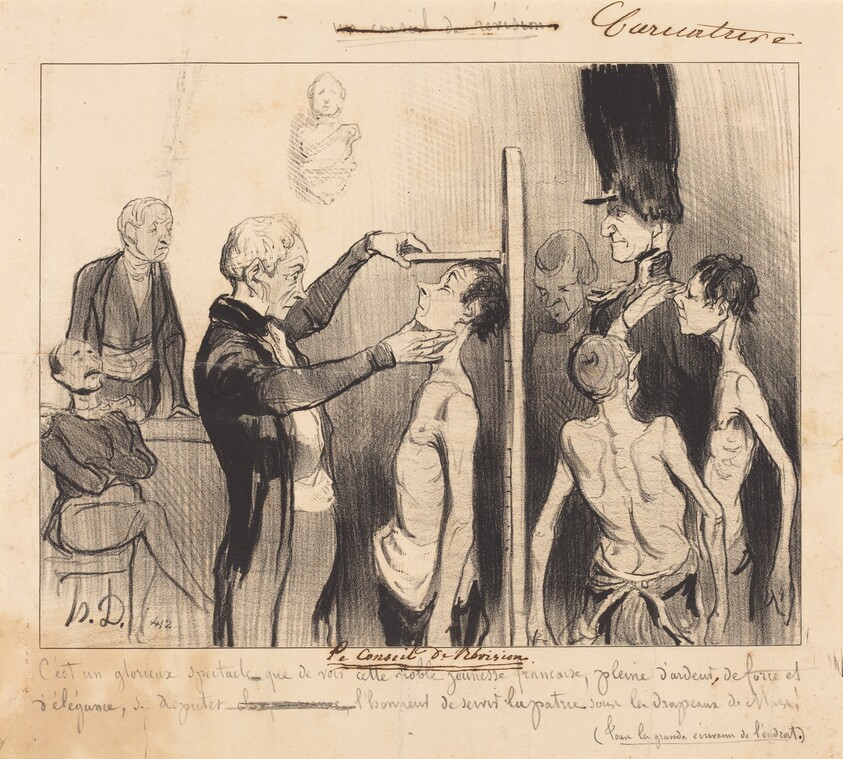 un conseil de révision
Caricature
h.D.
412
Le Conseil de Révision.
C'est un glorieux spectacle que de voir cette noble jeunesse française, pleine d'ardeur, de force et
d'élégance, se disputer l'honneur de servir la patrie sous les drapeaux de Mars!
(Tous les grands écrivains de l'endroit.)